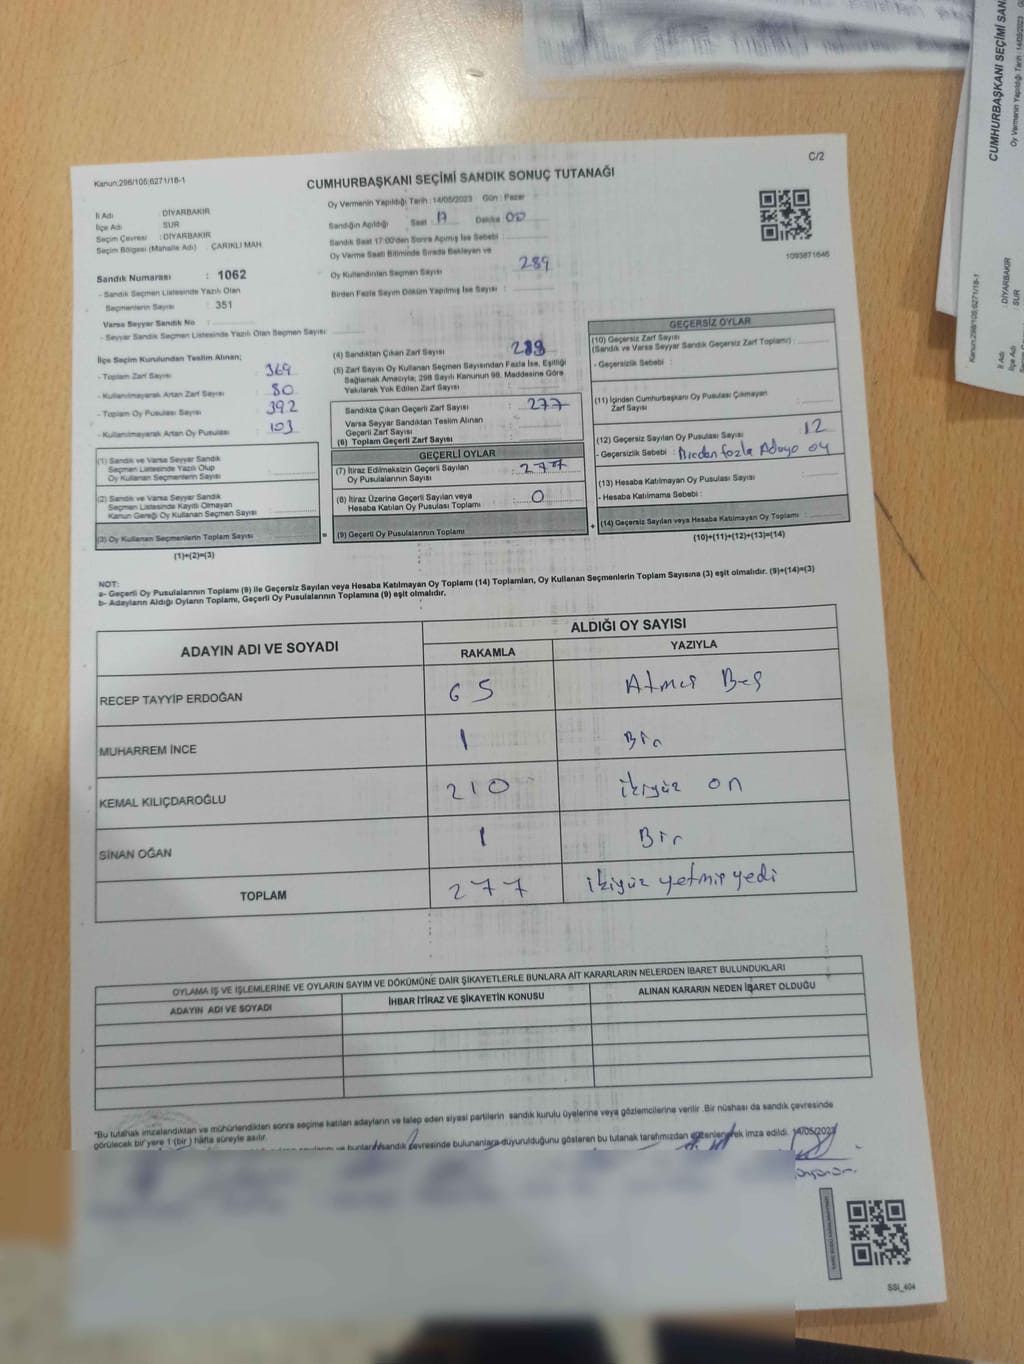 C/2
Kanun:298/105;6271/18-1
CUMHURBAŞKANI SEÇİMİ SANDIK SONUÇ TUTANAĞI
İl Adı : DİYARBAKIR
İlçe Adı : SUR
Seçim Çevresi : DİYARBAKIR
Seçim Bölgesi (Mahalle Adı) : ÇARIKLI MAH.
Oy Vermenin Yapıldığı Tarih :14/05/2023 Gün : Pazar
Sandığın Açıldığı Saat : 17 Dakika : 00
Sandık Saat 17:00'den Sonra Açılmış İse Sebebi :
Oy Verme Saati Bitiminde Sırada Bekleyen ve
Oy Kullandırılan Seçmen Sayısı : 289
Birden Fazla Sayım Döküm Yapılmış İse Sayısı :
1093871646
Sandık Numarası : 1062
- Sandık Seçmen Listesinde Yazılı Olan
Seçmenlerin Sayısı : 351
Varsa Seyyar Sandık No :
- Seyyar Sandık Seçmen Listesinde Yazılı Olan Seçmen Sayısı :
İlçe Seçim Kurulundan Teslim Alınan;
- Toplam Zarf Sayısı : 369
- Kullanılmayarak Artan Zarf Sayısı : 80
- Toplam Oy Pusulası Sayısı : 392
- Kullanılmayarak Artan Oy Pusulası : 103
(1) Sandık ve Varsa Seyyar Sandık
Seçmen Listesinde Yazılı Olup
Oy Kullanan Seçmenlerin Sayısı :
(2) Sandık ve Varsa Seyyar Sandık
Seçmen Listesinde Kayıtlı Olmayan
Kanun Gereği Oy Kullanan Seçmen Sayısı :
(3) Oy Kullanan Seçmenlerin Toplam Sayısı
(1)+(2)=(3)
(4) Sandıktan Çıkan Zarf Sayısı : 289
(5) Zarf Sayısı Oy Kullanan Seçmen Sayısından Fazla İse, Eşitliği
Sağlamak Amacıyla; 298 Sayılı Kanunun 98. Maddesine Göre
Yakılarak Yok Edilen Zarf Sayısı :
Sandıkta Çıkan Geçerli Zarf Sayısı : 277
Varsa Seyyar Sandıktan Teslim Alınan
Geçerli Zarf Sayısı
(6) Toplam Geçerli Zarf Sayısı :
GEÇERLİ OYLAR
(7) İtiraz Edilmeksizin Geçerli Sayılan
Oy Pusulalarının Sayısı : 277
(8) İtiraz Üzerine Geçerli Sayılan veya
Hesaba Katılan Oy Pusulası Toplamı : 0
= (9) Geçerli Oy Pusulalarının Toplamı
GEÇERSİZ OYLAR
(10) Geçersiz Zarf Sayısı
(Sandık ve Varsa Seyyar Sandık Geçersiz Zarf Toplamı) :
- Geçersizlik Sebebi :
(11) İçinden Cumhurbaşkanı Oy Pusulası Çıkmayan
Zarf Sayısı :
(12) Geçersiz Sayılan Oy Pusulası Sayısı : 12
- Geçersizlik Sebebi : Birden fazla Adaya oy
(13) Hesaba Katılmayan Oy Pusulası Sayısı :
- Hesaba Katılmama Sebebi :
+ (14) Geçersiz Sayılan veya Hesaba Katılmayan Oy Toplamı :
(10)+(11)+(12)+(13)=(14)
NOT:
a- Geçerli Oy Pusulalarının Toplamı (9) ile Geçersiz Sayılan veya Hesaba Katılmayan Oy Toplamı (14) Toplamları, Oy Kullanan Seçmenlerin Toplam Sayısına (3) eşit olmalıdır. (9)+(14)=(3)
b- Adayların Aldığı Oyların Toplamı, Geçerli Oy Pusulalarının Toplamına (9) eşit olmalıdır.
ADAYIN ADI VE SOYADI
ALDIĞI OY SAYISI
RAKAMLA YAZIYLA
RECEP TAYYİP ERDOĞAN 65 Atmış Beş
MUHARREM İNCE 1 Bir
KEMAL KILIÇDAROĞLU 210 ikiyüz on
SİNAN OĞAN 1 Bir
TOPLAM 277 ikiyüz yetmiş yedi
OYLAMA İŞ VE İŞLEMLERİNE VE OYLARIN SAYIM VE DÖKÜMÜNE DAİR ŞİKAYETLERLE BUNLARA AİT KARARLARIN NELERDEN İBARET BULUNDUKLARI
ADAYIN ADI VE SOYADI
İHBAR İTİRAZ VE ŞİKAYETİN KONUSU
ALINAN KARARIN NEDEN İBARET OLDUĞU
"Bu tutanak imzalandıktan ve mühürlendikten sonra seçime katılan adayların ve talep eden siyasi partilerin sandık kurulu üyelerine veya gözlemcilerine verilir .Bir nüshası da sandık çevresinde
görülecek bir yere 1 (bir ) hafta süreyle asılır.
ve bunların sandık çevresinde bulunanlara duyurulduğunu gösteren bu tutanak tarafımızdan düzenlenerek imza edildi. 14/05/2023
SSI_404
CUMHURBAŞKANI SEÇİMİ SAN
Oy Vermenin Yapıldığı Tarih :14/05/2023
Kanun:298/105;6271/18-1
İl Adı : DİYARBAKIR
İlçe Adı : SUR